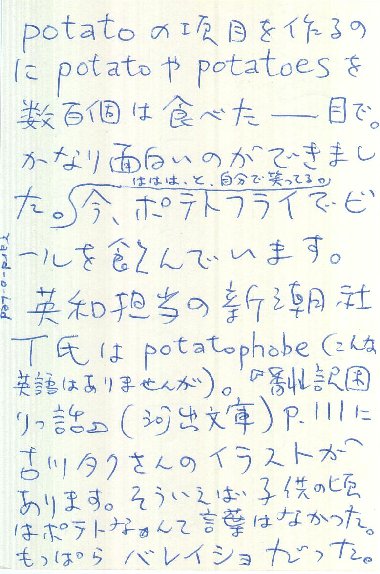 potatoの項目を作るの
にpotatoやpotatoesを
数百個は食べた——目で。
かなり面白いのができまし
ははは、と、自分で笑ってる。
た。今、ポテトフライでビ
ールを飲んでいます。
英和担当の新潮社
T氏はpotatophobe(こんな
英語はありませんが)。『翻訳困
りっ話』(河出文庫)P.111に
古川タクさんのイラストが
あります。そういえば子供の頃
はポテトなんて言葉はなかった。
もっぱらバレイショだった。